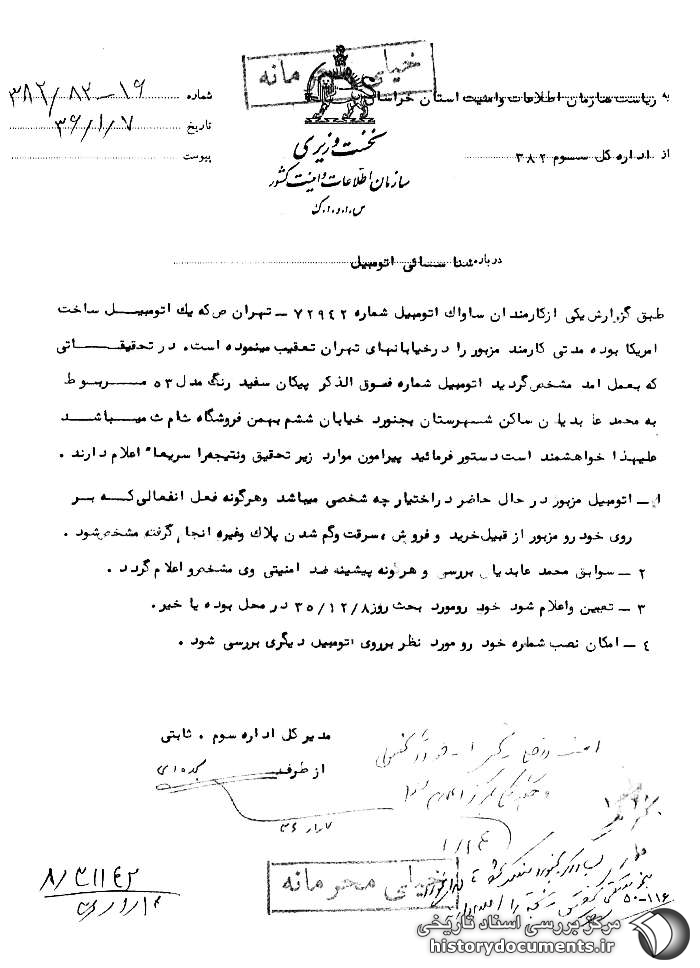 خیلی محرمانه
به ریاست سازمان اطلاعات و امنیت استان خراسان
از اداره کل سوم ۳۸۲
شماره ۳۸۲/۸۲-۱۶
تاریخ ۳۶/۱/۷
پیوست
نخست وزیری
سازمان اطلاعات و امنیت کشور
س.ا.و.ا.ک
درباره شناسائی اتومبیل
طبق گزارش یکی ازکارمندان ساواک اتومبیل شماره ۷۲۹۴۲ – تهران ص که یك اتومبیل ساخت
امریکا بوده مدتی کارمند مزبور را درخیابانهای تهران تعقیب مینموده است. در تحقیقاتی
که بعمل امد مشخص گردید اتومبیل شماره فوق الذکر پیکان سفید رنگ مدل ۵۳ مربوط
به محمد عابدیان ساکن شهرستان بجنورد خیابان ششم بهمن فروشگاه شام ث میباشد
علیهذا خواهشمند است دستور فرمائید پیرامون موارد زیر تحقیق ونتیجه را سریعا" اعلام دارند .
۱ – اتومبیل مزبور در حال حاضر دراختیار چه شخصی میباشد وهرگونه فعل انفعالی که بر
روی خود رو مزبور از قبیل خرید و فروش ، سرقت وگم شدن پلاك وغیره انجام گرفته مشخص شود .
۲ – سوابق محمد عابدیان بررسی و هرگونه پیشینه ضد امنیتی وی مشخص و اعلام گردد .
۳ – تعیین واعلام شود خود رومورد بحث روز ۳۵/۱۲/۸ در محل بوده یا خیر.
۴ – امکان نصب شماره خود رو مورد نظر برروی اتومبیل دیگری بررسی شود .
مدیر کل اداره سوم . ثابتی
از طرف
خیلی محرمانه
۸/۳۱۱۴۲
۵۰-۱۱۶
مرکز بررسی اسناد تاریخی
historydocuments.ir